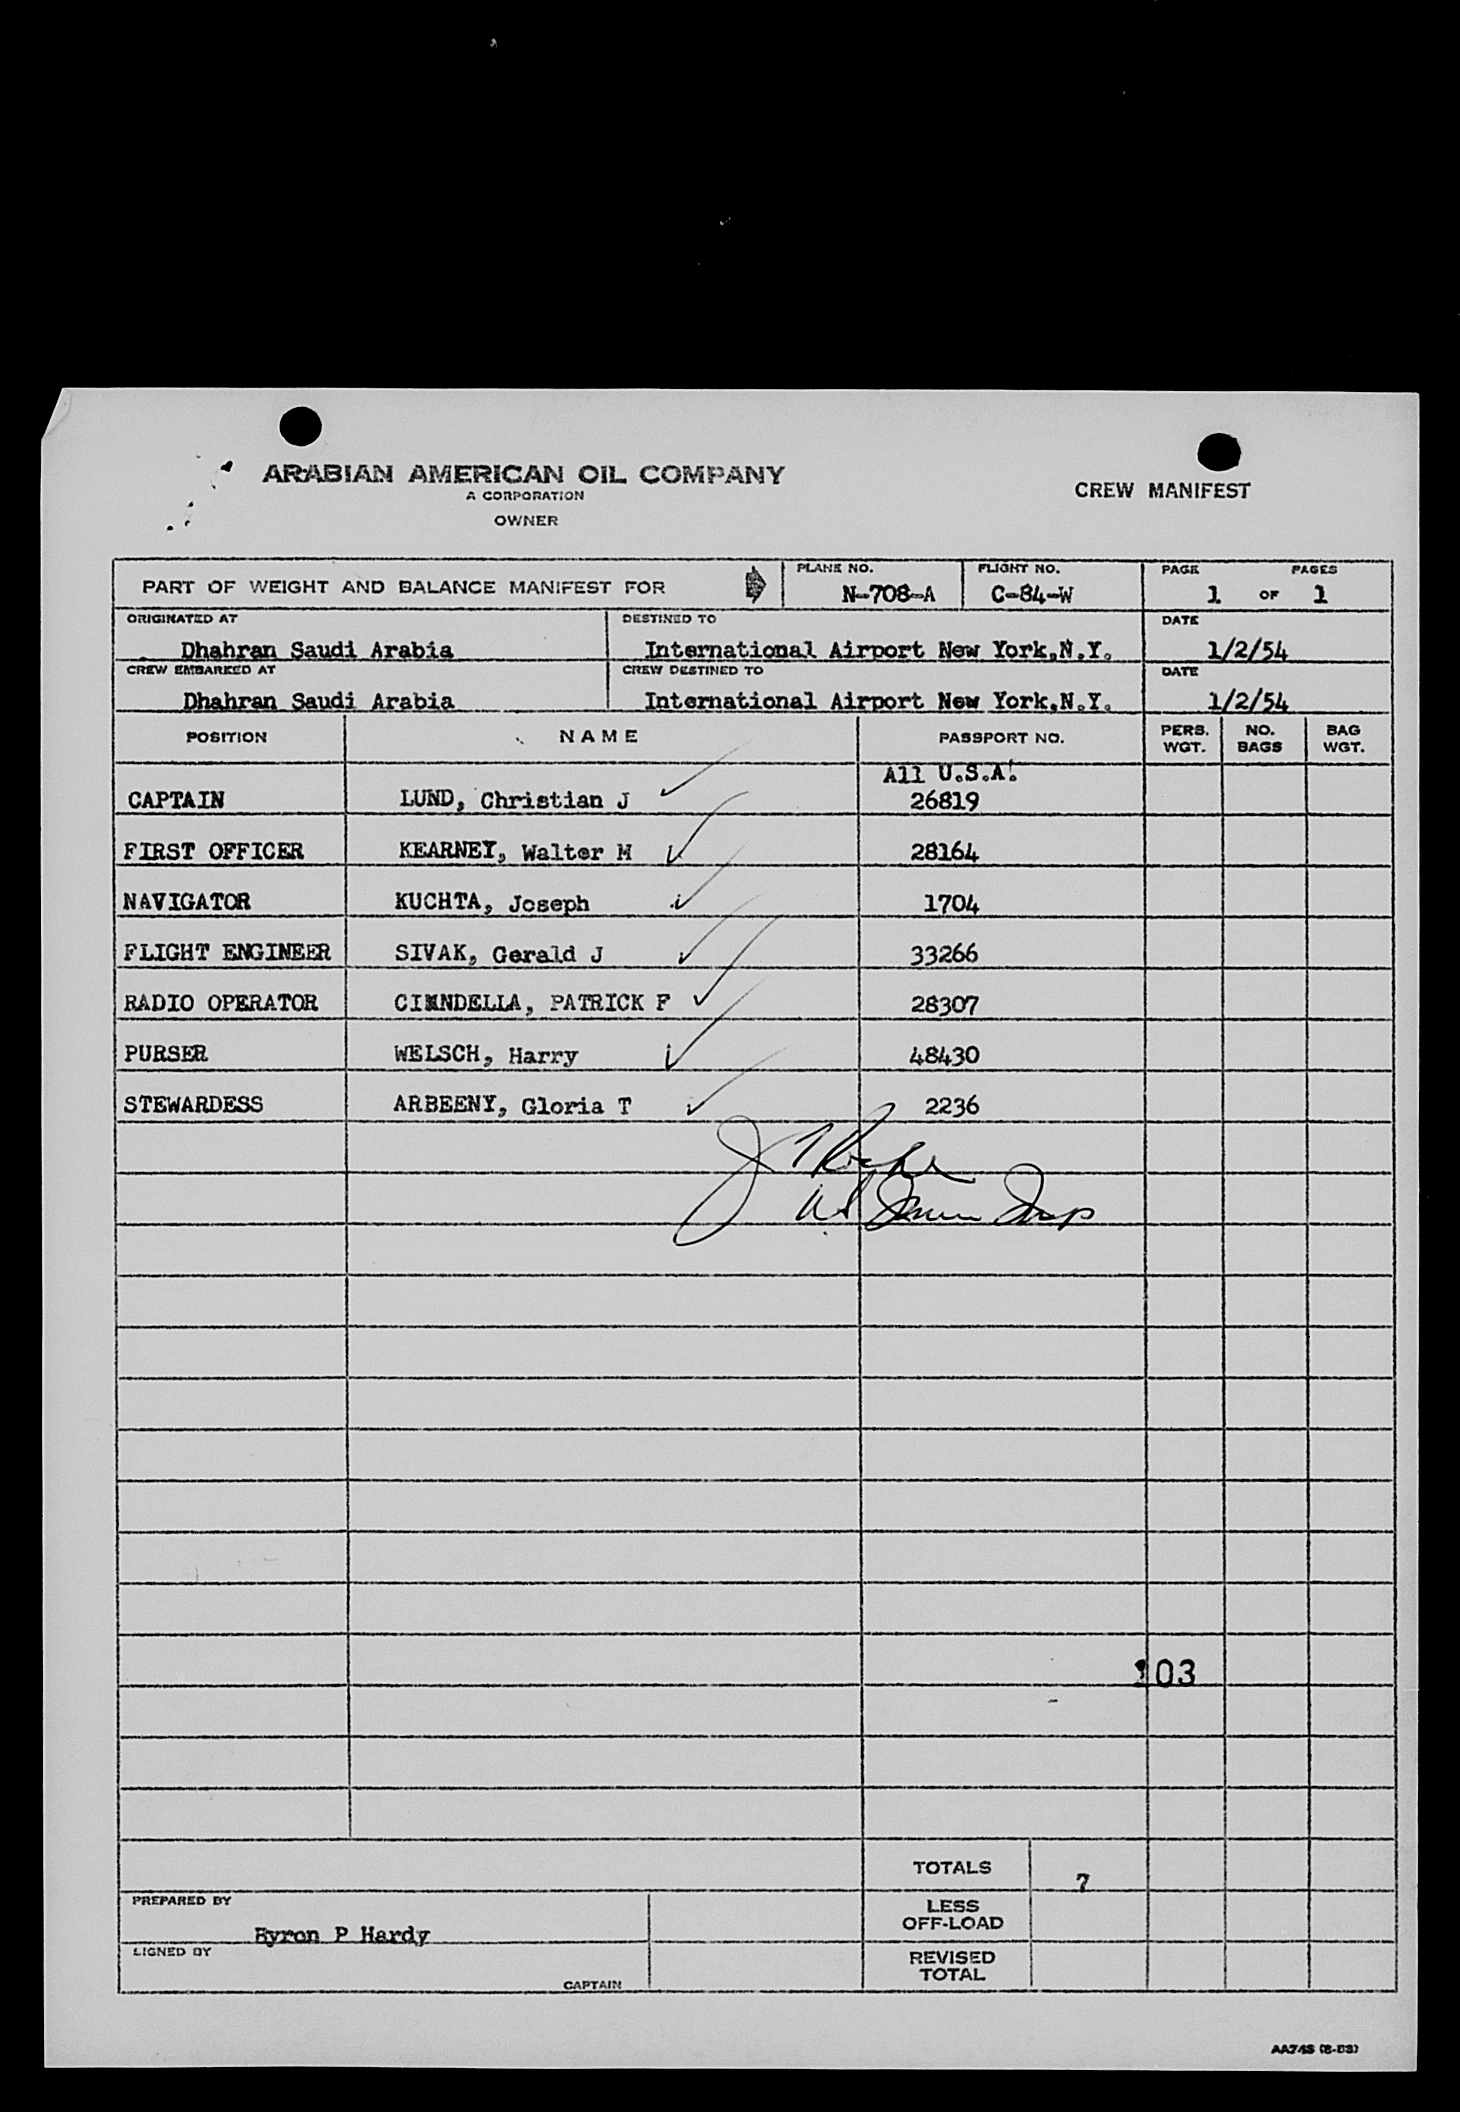 ARABIAN AMERICAN OIL COMPANY
A CORPORATION
OWNER
CREW MANIFEST
PART OF WEIGHT AND BALANCE MANIFEST FOR
PLANE NO.
N-708-A
FLIGHT NO.
C-84-W
PAGE 1 OF 1 PAGES
ORIGINATED AT
Dhahran Saudi Arabia
DESTINED TO
International Airport New York,N.Y.
DATE
1/2/54
CREW EMBARKED AT
Dhahran Saudi Arabia
CREW DESTINED TO
International Airport New York,N.Y.
DATE
1/2/54
POSITION NAME PASSPORT NO. PERS. WGT. NO. BAGS BAG WGT.
All U.S.A.
CAPTAIN LUND, Christian J 26819
FIRST OFFICER KEARNEY, Walter M 28164
NAVIGATOR KUCHTA, Joseph 1704
FLIGHT ENGINEER SIVAK, Gerald J 33266
RADIO OPERATOR PATRICK F 28307
PURSER WELSCH, Harry 48430
STEWARDESS ARBEENY, Gloria T 2236
J
US Imm Insp
103
TOTALS 7
PREPARED BY
Byron P Hardy
LESS
OFF-LOAD
SIGNED BY
CAPTAIN
REVISED
TOTAL